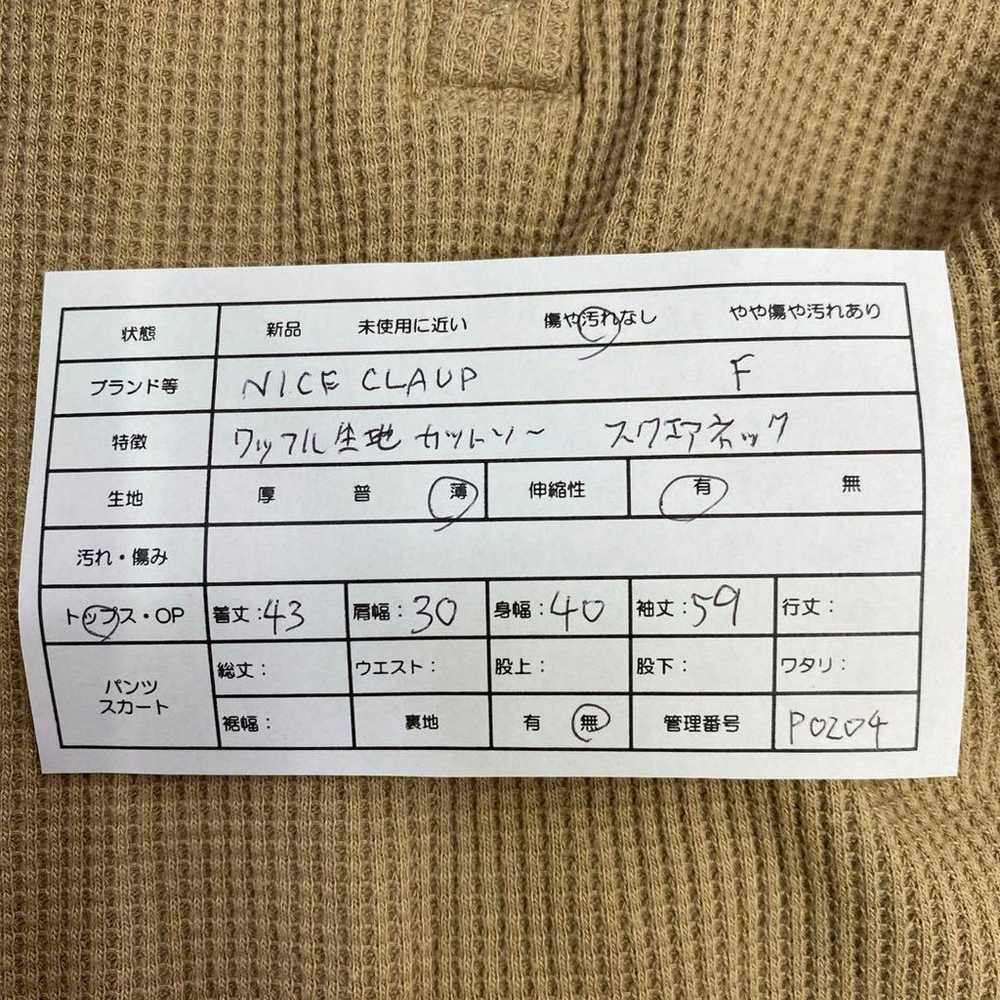 状態 新品 未使用に近い 傷や汚れなし やや傷や汚れあり
ブランド等 NICE CLAUP F
特徴 ワッフル生地 カットソー スクエアネック
生地 厚 普 薄 伸縮性 有 無
汚れ・傷み
トップス・OP 着丈:43 肩幅:30 身幅:40 袖丈:59 裄丈:
パンツ スカート 総丈: ウエスト: 股上: 股下: ワタリ:
裾幅: 裏地 有 無 管理番号 P0204